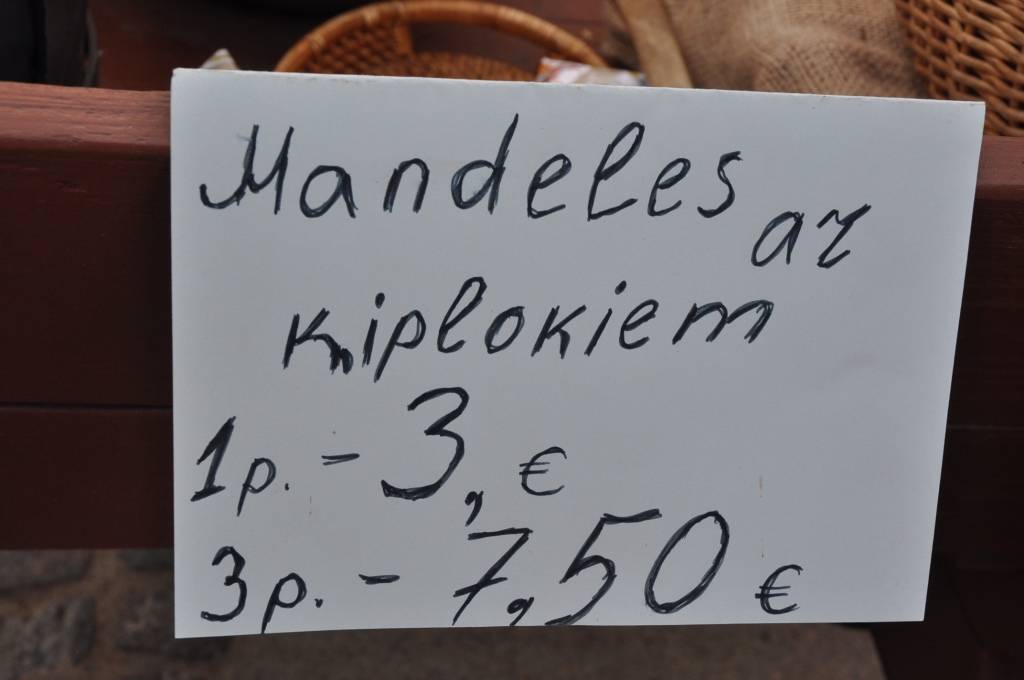 Mandeles ar
ķiplokiem
1p. - 3, €
3p. - 7,50 €